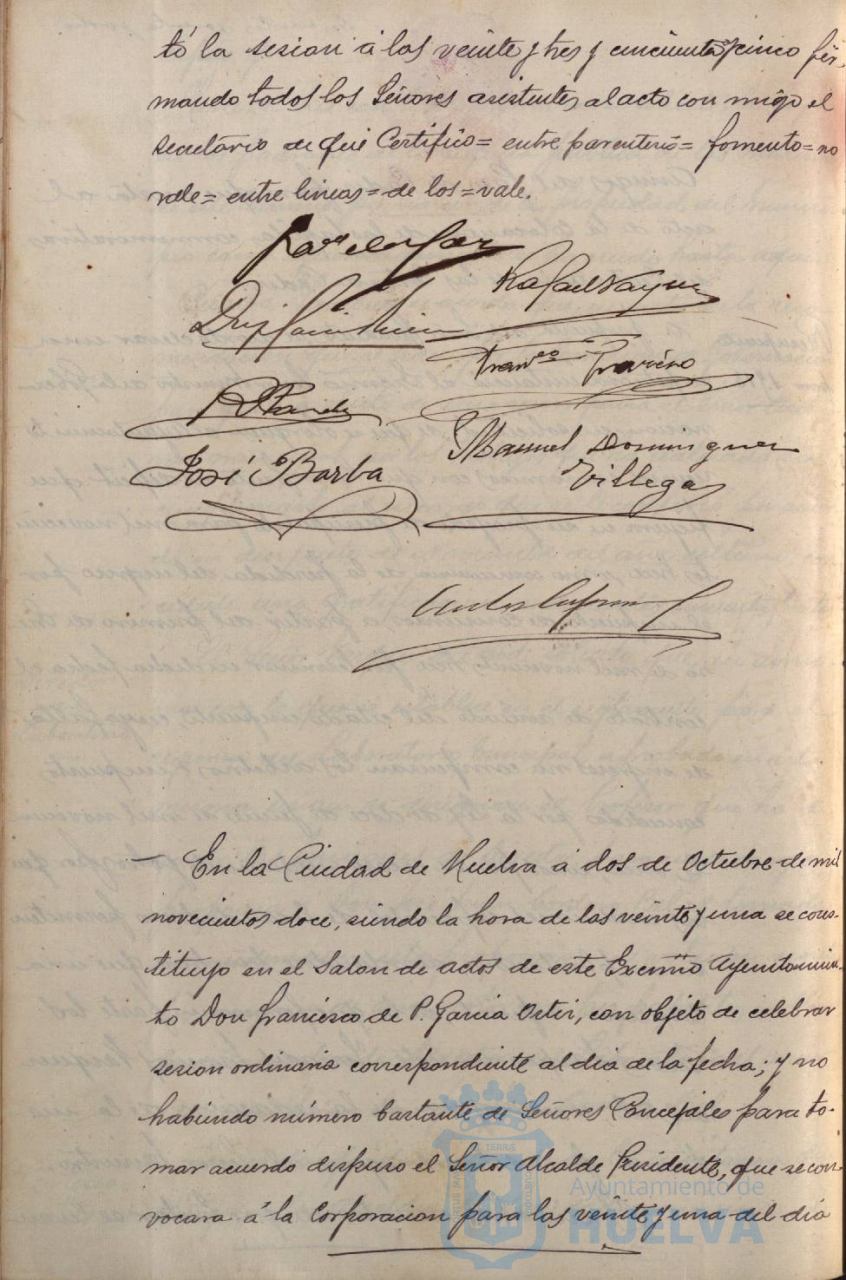 tó la sesion á las veinte y tres y cincuenta y cinco fir-
mando todos los Señores asistentes al acto con migo el
secretario de que Certifico= entre parentesis= fomento= no
vale= entre lineas= de los= vale.
Rafael Vazquez
José Barba
Manuel Dominguez
Villegas
— En la Ciudad de Huelva á dos de Octubre de mil
novecientos doce, siendo la hora de las veinte y una se cons-
tituyo en el Salon de actos de este Excmo Ayuntamien-
to Don Francisco de P. Garcia Ortiz, con objeto de celebrar
sesion ordinaria correspondiente al dia de la fecha; y no
habiendo número bastante de Señores Concejales para to-
mar acuerdo dispuso el Señor Alcalde Presidente, que se con-
vocara á la Corporacion para las veinte y una del dia
Ayuntamiento de
HUELVA